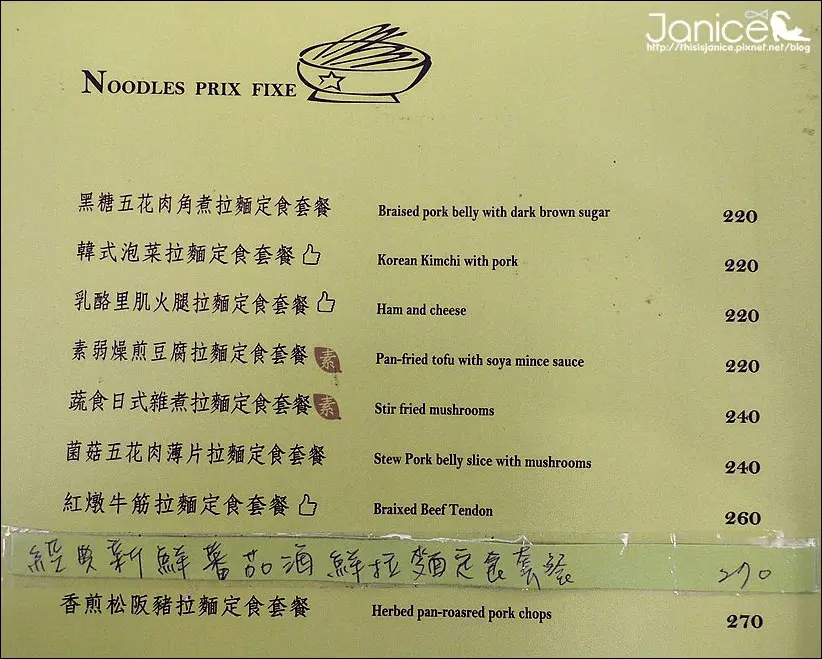 Janice
http://thisisjanice.pixnet.net/blog
NOODLES PRIX FIXE
黑糖五花肉角煮拉麵定食套餐 Braised pork belly with dark brown sugar 220
韓式泡菜拉麵定食套餐 Korean Kimchi with pork 220
乳酪里肌火腿拉麵定食套餐 Ham and cheese 220
素弱燥煎豆腐拉麵定食套餐 素 Pan-fried tofu with soya mince sauce 220
蔬食日式雜煮拉麵定食套餐 素 Stir fried mushrooms 240
菌菇五花肉薄片拉麵定食套餐 Stew Pork belly slice with mushrooms 240
紅燉牛筋拉麵定食套餐 Braixed Beef Tendon 260
經典新鮮蕃茄海鮮拉麵定食套餐 270
香煎松阪豬拉麵定食套餐 Herbed pan-roasred pork chops 270